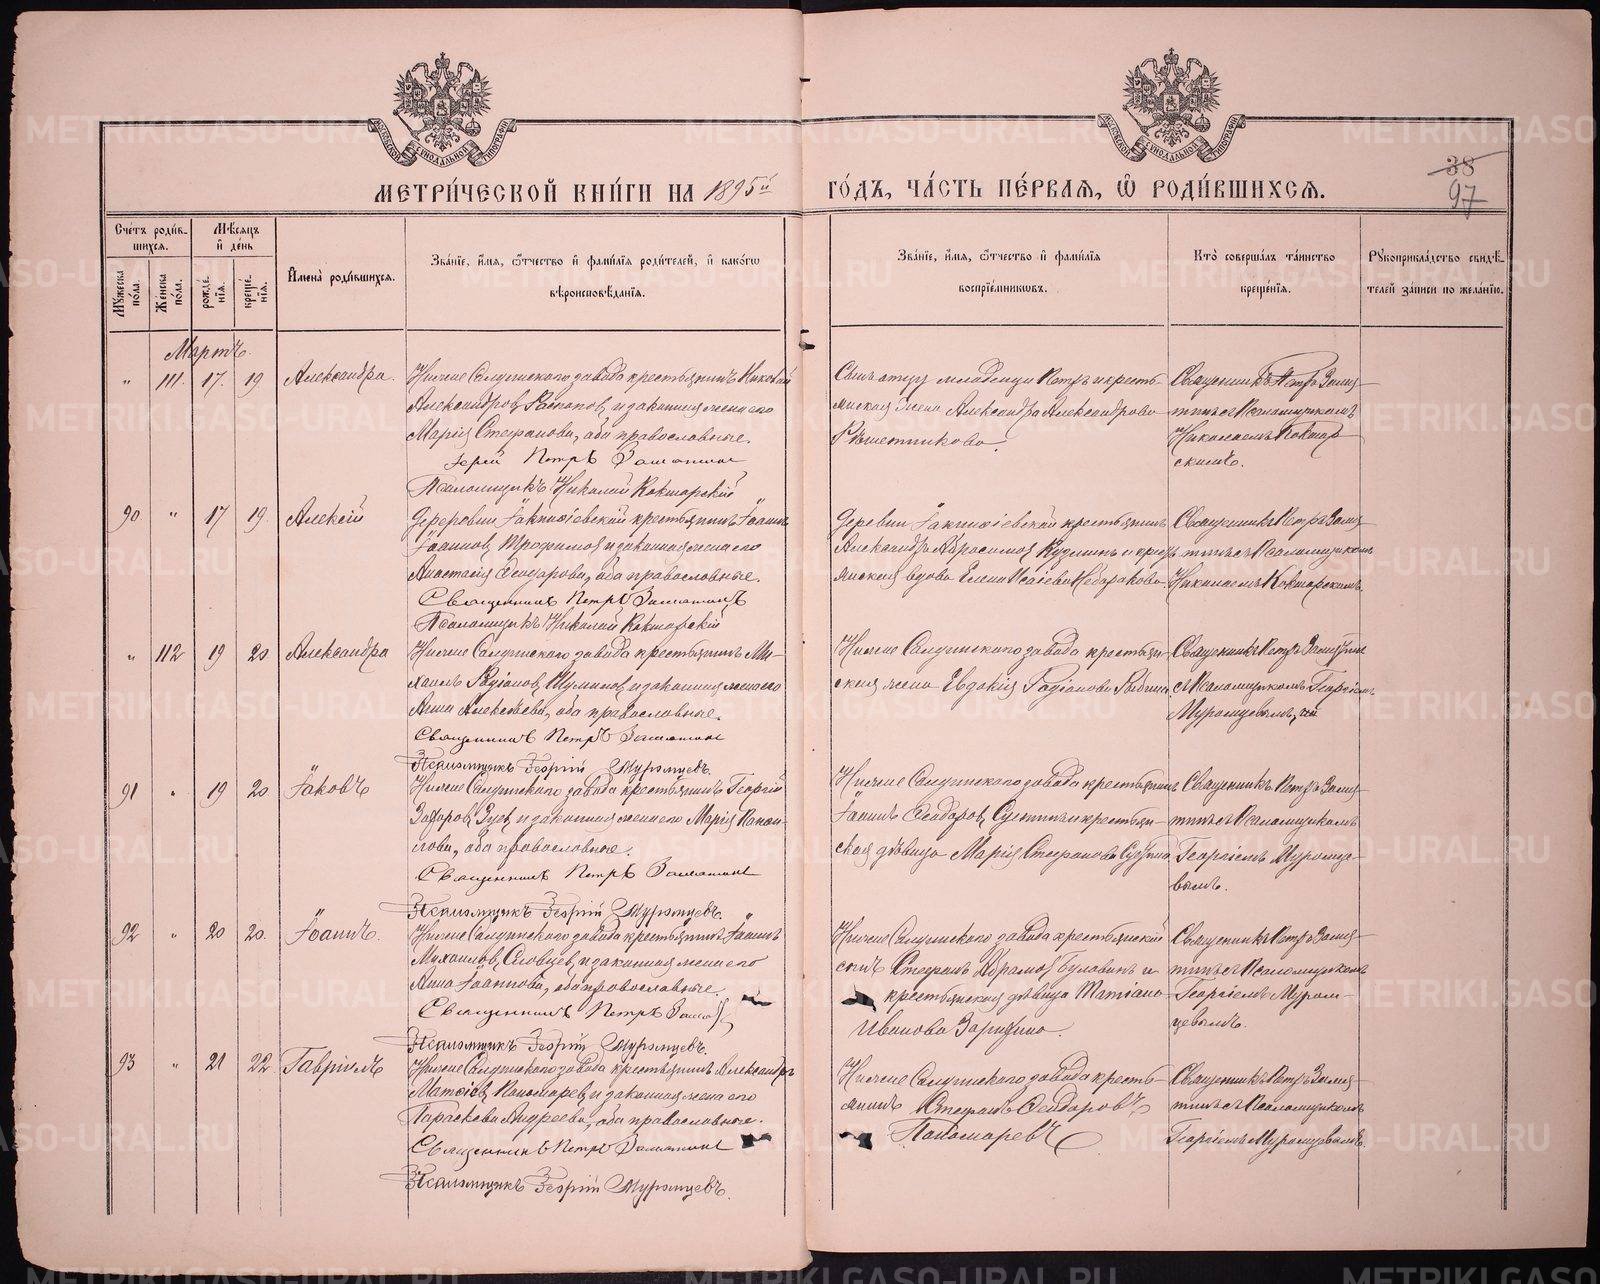 МЕТРИЧЕСКОЙ КНИГИ НА 1895й ГОДЪ, ЧАСТЬ ПЕРВАЯ, Ѿ РОДИВШИХСЯ.
38
97
Счетъ родившихся.
Мѣсяцъ и день
Мужеска пола.
Женска пола.
рожденія.
крещенія.
Имена родившихся.
Званіе, имя, ѿтчество и фамилія родителей, и какогѡ
вѣроисповѣданія.
Званіе, имя, ѿтчество и фамилія
воспріемникѡвъ.
Кто совершалъ таинство
крещенія.
Рукоприкладство свидѣ-
телей записи по желанію.
Мартъ.
" 111. 17. 19 Александра.
Нижне Салдинскаго завода крестьянинъ Николай
Александровъ и законная жена его
Марія Стефанова, оба православные.
Іерей Петръ Замятинъ
Псаломщикъ Николай Кокшарскій
Самъ отецъ младенца Петръ и кресть-
янская жена Александра Александрова
Рѣшетникова.
Священникъ Петръ Замя-
тинъ съ Псаломщикомъ
Николаемъ Кокшар-
скимъ.
90. " 17 19. Алексій
Деревни крестьянинъ Іоаннъ
Іоанновъ Трофимовъ и законная жена его
Анастасія Ѳеодорова, оба православные.
Священникъ Петръ Замятинъ
Псаломщикъ Николай Кокшарскій
Деревни крестьянинъ
Александръ Абросимовъ и кресть-
янская вдова Елена Исаіева
Священникъ Петръ Замя-
тинъ съ Псаломщикомъ
Николаемъ Кокшарскимъ.
" 112 19 20 Александра
Нижне Салдинскаго завода крестьянинъ Ми-
хаилъ Родіоновъ Шумиловъ и законная жена его
Анна Алексѣева, оба православные.
Священникъ Петръ Замятинъ
Псаломщикъ Георгій Муромцевъ.
Нижне Салдинскаго завода крестьян-
ская жена Евдокія Родіонова
Священникъ Петръ Замятинъ
съ Псаломщикомъ Георгіемъ
Муромцевымъ
91 " 19 20 Іаковъ
Нижне Салдинскаго завода крестьянинъ Георгій
Захаровъ Зуевъ и законная жена его Марія Панфи-
лова, оба православные.
Священникъ Петръ Замятинъ
Псаломщикъ Георгій Муромцевъ.
Нижне Салдинскаго завода крестьянинъ
Іоаннъ Ѳеодоровъ и крестьян-
ская дѣвица Марія Стефанова
Священникъ Петръ Замя-
тинъ съ Псаломщикомъ
Георгіемъ Муромце-
вымъ.
92 " 20 20. Іоаннъ.
Нижне Салдинскаго завода крестьянинъ Іоаннъ
Михаиловъ Словцовъ и законная жена его
Анна Іоаннова, оба православные.
Священникъ Петръ
Псаломщикъ Георгій Муромцевъ.
Нижне Салдинскаго завода крестьянскій
сынъ Стефанъ Абрамовъ Булавинъ и
крестьянская дѣвица Татіана
Иванова
Священникъ Петръ Замя-
тинъ съ Псаломщикомъ
Георгіемъ Муром-
цевымъ.
93 " 21 22 Гавріилъ
Нижне Салдинскаго завода крестьянинъ Александръ
Матѳіевъ Пономаревъ и законная жена его
Параскева Андреева, оба православные.
Священникъ Петръ Замятинъ
Псаломщикъ Георгій Муромцевъ.
Нижне Салдинскаго завода кресть-
янинъ Стефанъ Ѳеодоровъ
Пономаревъ
Священникъ Петръ Замя-
тинъ съ Псаломщикомъ
Георгіемъ Муромцевымъ.
METRIKI.GASO-URAL.RU